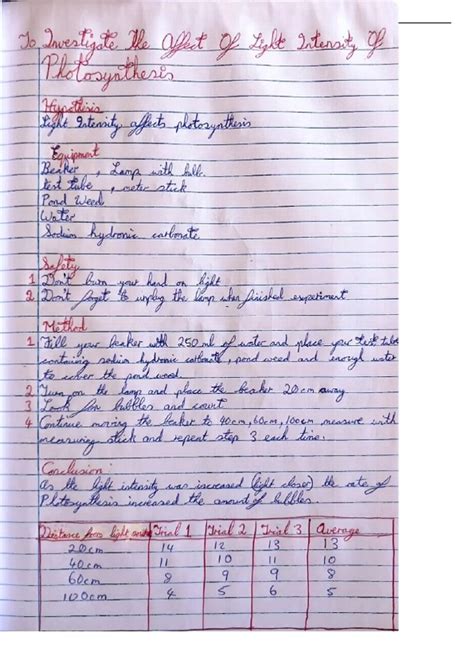 To Investigate The Affect Of Light Intensity Of
Photosynthesis
Hypothesis
Light Intensity affects photosynthesis
Equipment
Beaker , Lamp with bulb.
test tube , meter stick
Pond Weed
Water
Sodium hydronic carbonate
Safety
1 Don't burn your hand on light
2 Don't forget to unplug the lamp when finished experiment
Method
1 Fill your beaker with 250 ml of water and place your test tube
containing sodium hydronic carbonate, pond weed and enough water
to cover the pond weed
2 Turn on the lamp and place the beaker 20cm away
3 Look for bubbles and count
4 Continue moving the beaker to 40cm, 60cm, 100cm measure with
measuring stick and repeat step 3 each time.
Conclusion:
As the light intensity was increased (light closer) the rate of
Photosynthesis increased the amount of bubbles.
Distance from light source Trial 1 Trial 2 Trial 3 Average
20cm 14 12 13 13
40cm 11 10 11 10
60cm 8 9 9 8
100cm 4 5 6 5